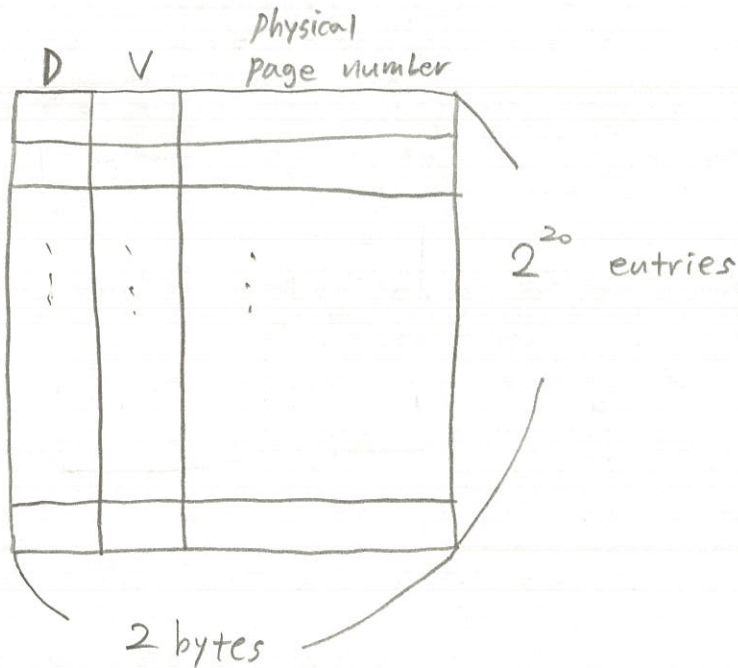 Physical
D V page number
2^20 entries
2 bytes